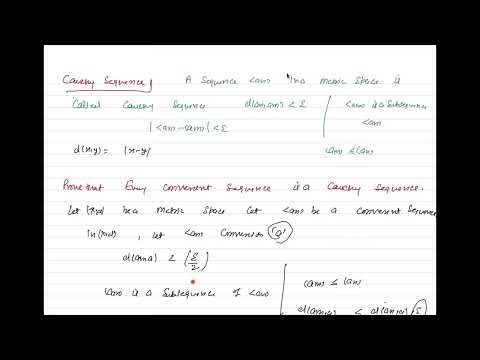 Cauchy Sequence | A Sequence <an> in a metric Space is
Called Cauchy Sequence d(an,am) < ε | <am> is a Subsequence
|<an - am>| < ε <an>
d(x,y) = |x-y| <am> ≤ <an>
Prove that Every Convergent Sequence is a Cauchy Sequence.
Let (x,d) be a metric Space Let <an> be a Convergent Sequence
in (x,d), Let <an> Converges 'a'
d(an,a) < (ε/2)
<am> is a Subsequence of <an> <am> ≤ <an>